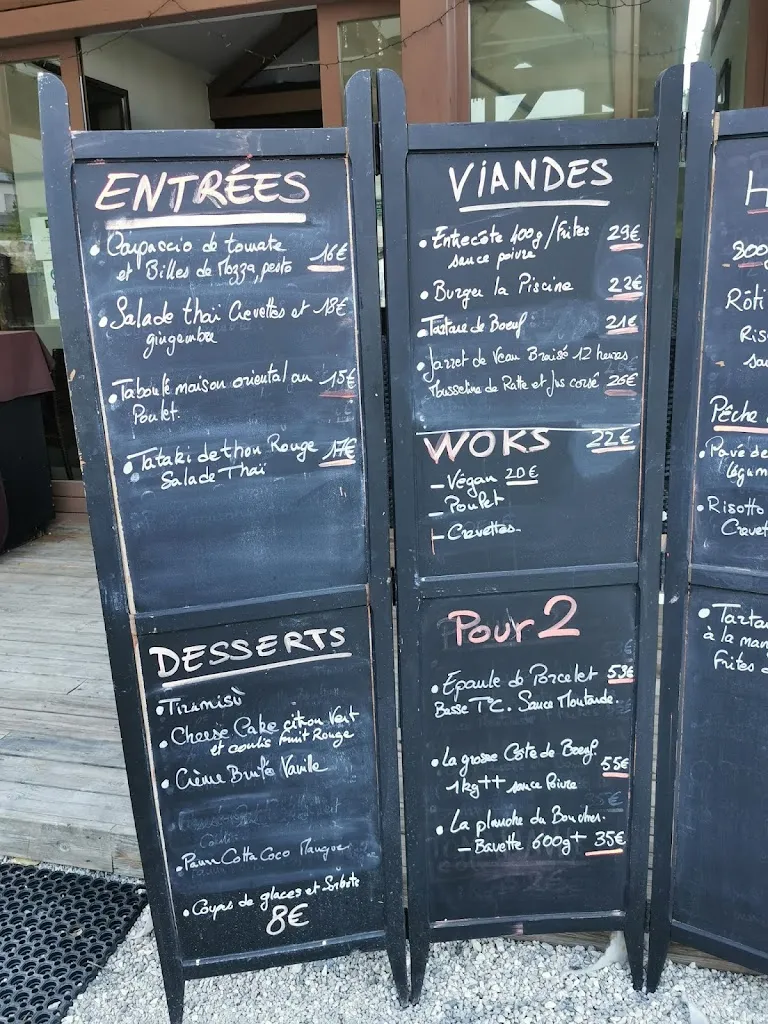 ENTRÉES
• Carpaccio de tomate
et Billes de Mozza, pesto 16€
• Salade thaï Crevettes et 18€
gingembre
• Taboulé maison oriental au 15€
Poulet
• Tataki de thon Rouge 17€
Salade Thaï
DESSERTS
• Tiramisù
• Cheese Cake citron Vert
et coulis fruit Rouge
• Crème Brulée Vanille
• Panna Cotta Coco Mangue
• Coupes de glaces et Sorbets
8€
VIANDES
• Entrecôte 400g / Frites 29€
sauce poivre
• Burger la Piscine 22€
• Tartare de Boeuf 21€
• Jarret de Veau Braisé 12 heures
Mousseline de Ratte et Jus corsé 26€
WOKS 22€
- Végan 20€
- Poulet
- Crevettes
Pour 2
• Epaule de Porcelet 59€
Basse T°C. Sauce Moutarde.
• La grosse Côte de Boeuf 55€
1kg++ sauce Poivre
• La planche du Boucher.
- Bavette 600g+ 35€
H
800g
Rôti
Ris
sau
Pêche
• Pavé de
légum
• Risotto
Crevet
• Tartar
à la man
Frites